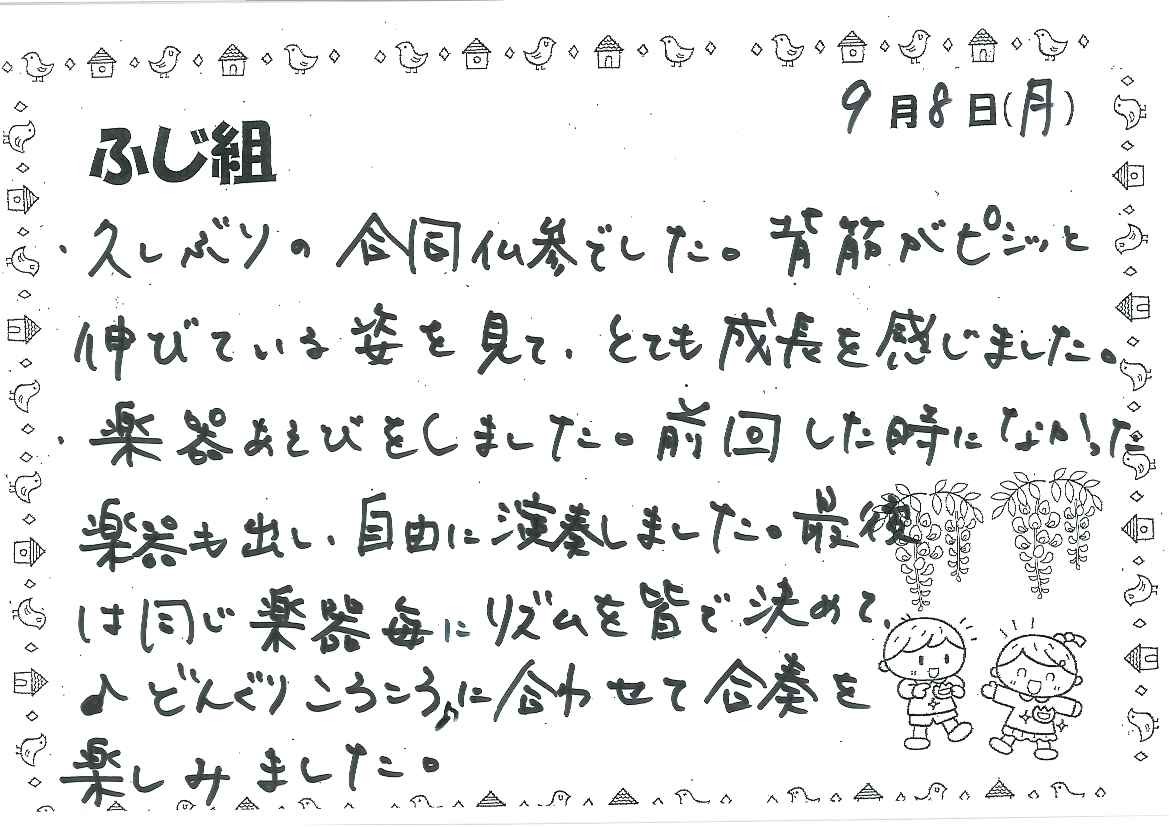 9月8日(月)
ふじ組
・久しぶりの合同仏参でした。背筋がピシッと
伸びている姿を見て、とても成長を感じました。
・楽器あそびをしました。前回した時になかった
楽器も出し、自由に演奏しました。最後
は同じ楽器毎にリズムを皆で決めて、
♪どんぐりころころ♪に合わせて合奏を
楽しみました。